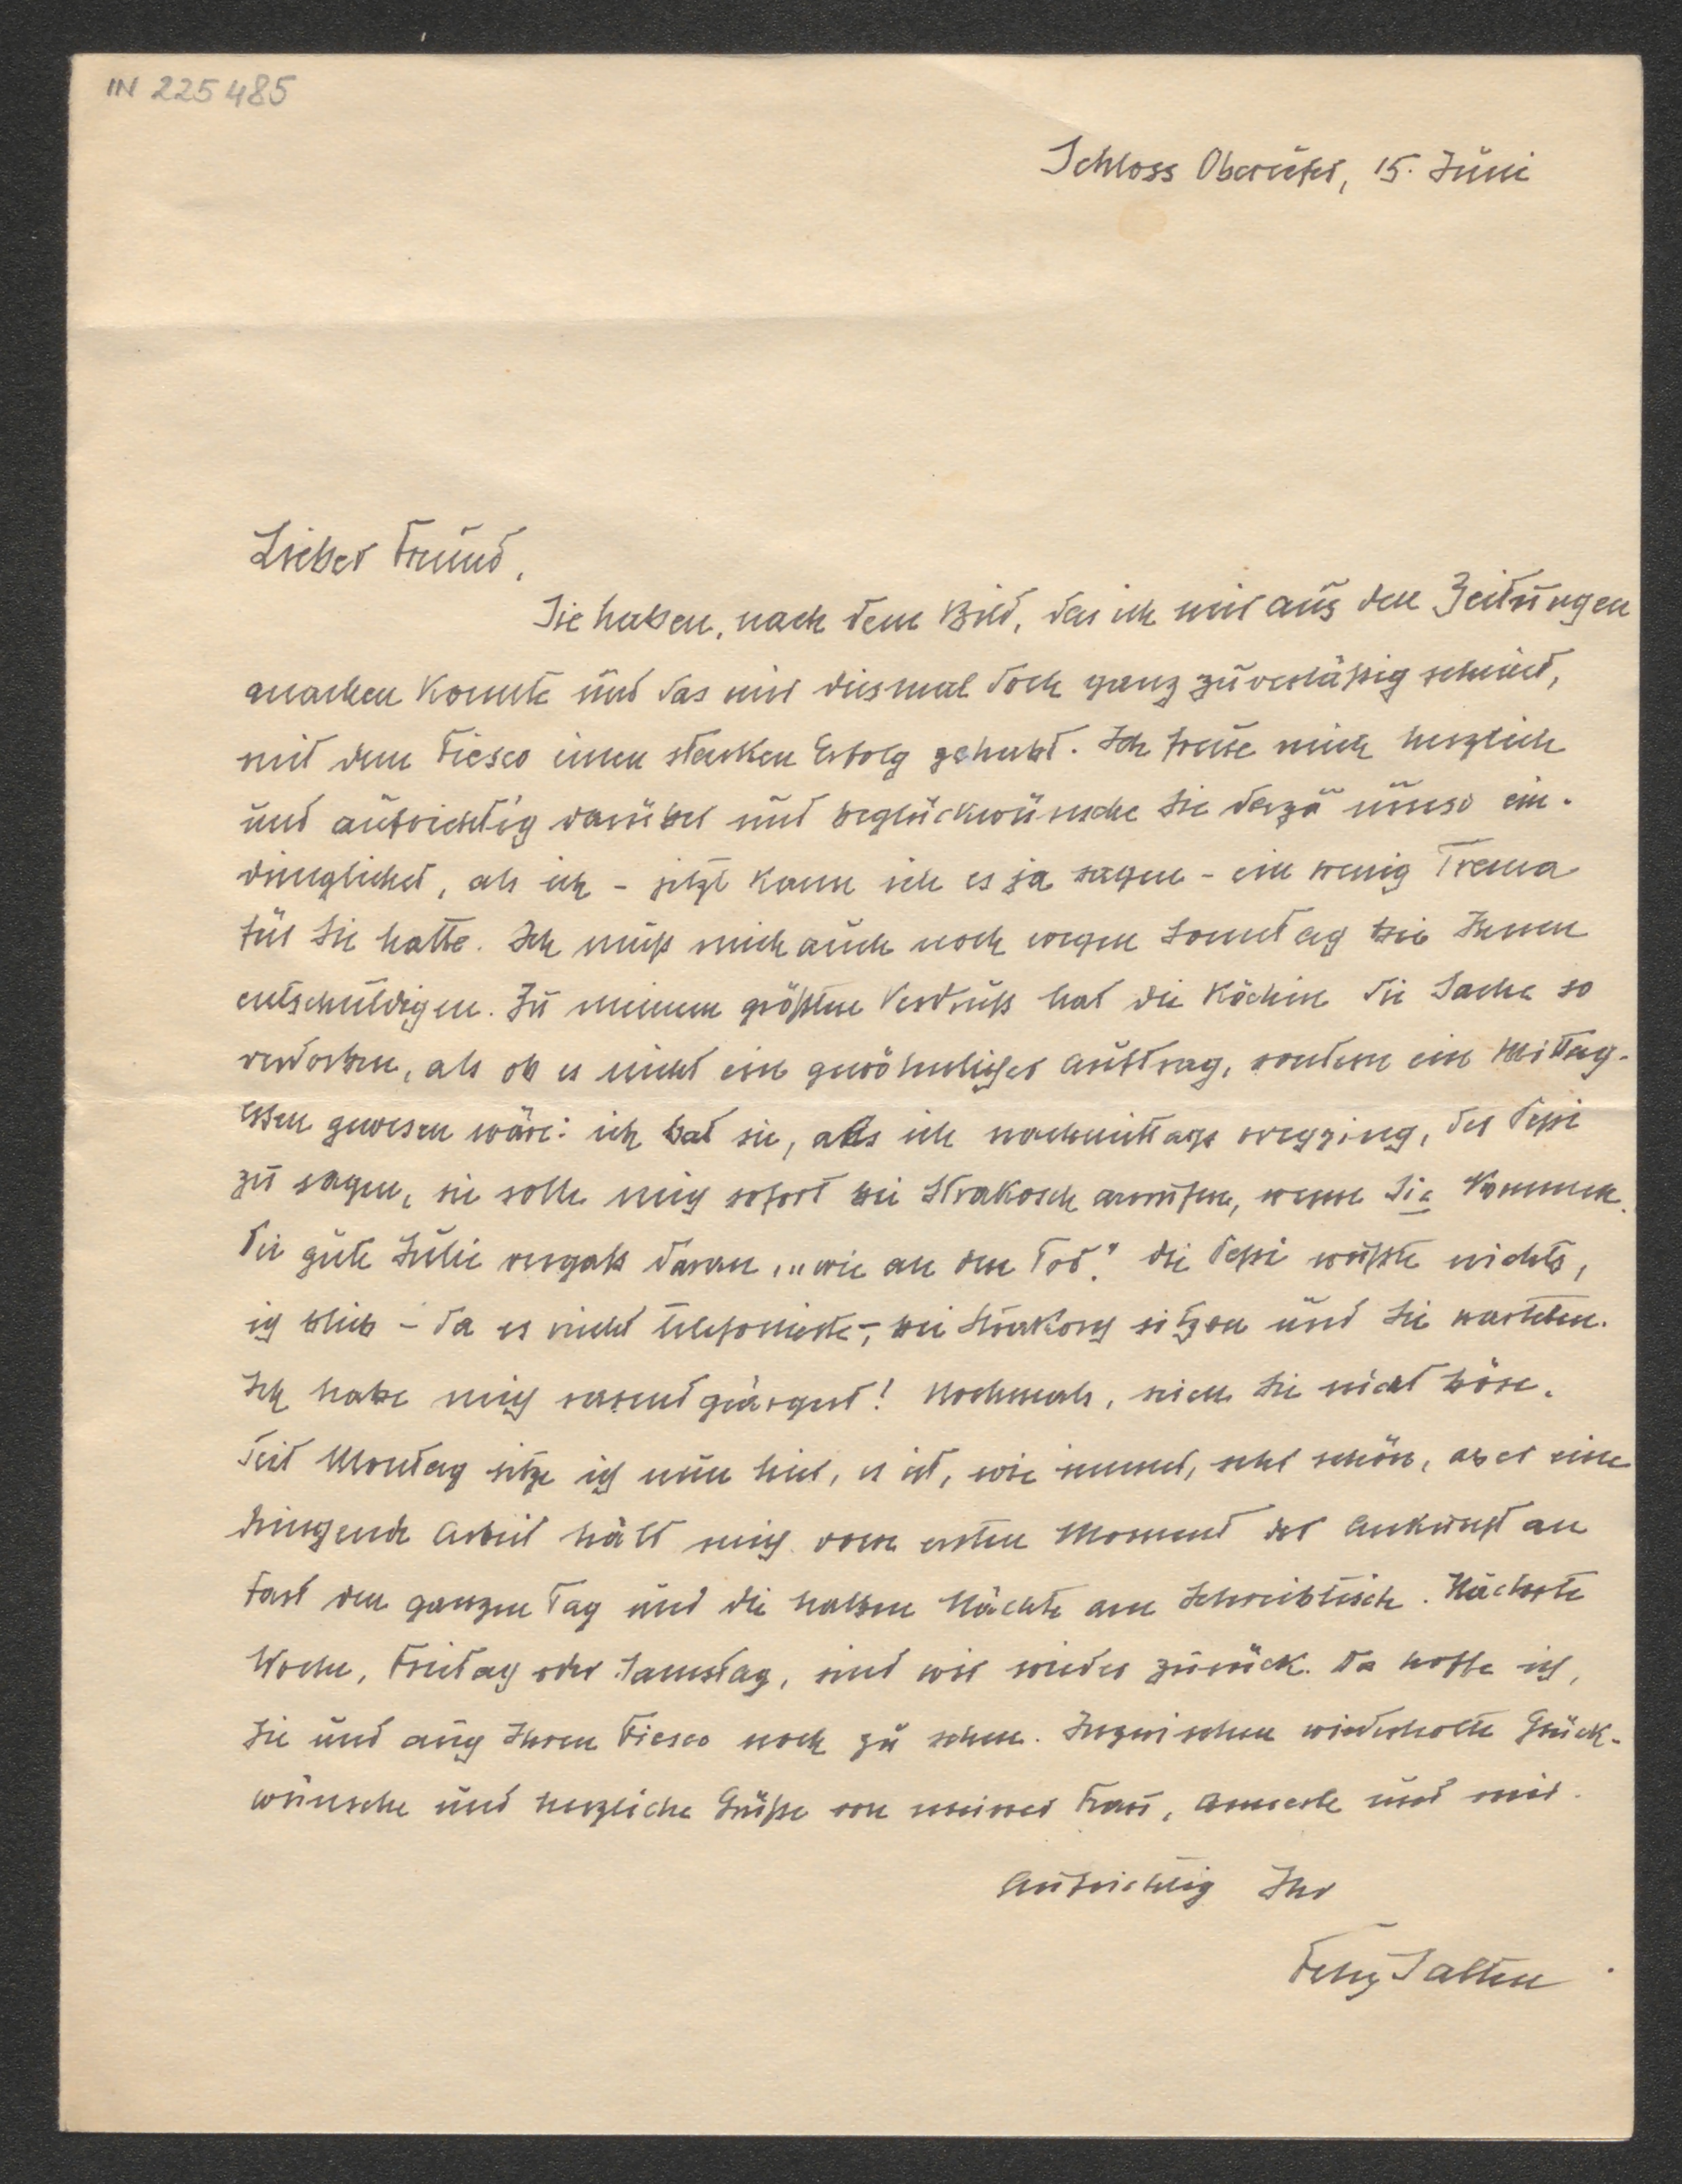 IN 225485
Schloss Oberufer, 15. Juni
Lieber Freund,
Sie haben, nach dem Bild, das ich mir aus den Zeitungen
machen konnte und das mir diesmal doch ganz zuverläßig scheint,
mit dem Fiesco einen starken Erfolg gehabt. Ich freue mich herzlich
und aufrichtig darüber und beglückwünsche Sie dazu umso ein-
dringlicher, als ich – jetzt kann ich es ja sagen – ein wenig Trema
für Sie hatte. Ich muß mich auch noch wegen Sonntag bei Ihnen
entschuldigen. Zu meinem größten Verdruß hat die Köchin die Sache so
verdorben, als ob es nicht ein gewöhnlicher Auftrag, sondern ein Mittag-
essen gewesen wäre: ich bat sie, als ich nachmittags wegging, der Peppi
zu sagen, sie solle mich sofort bei Strakosch anrufen, wenn Sie kommen.
Die gute Julie vergaß daran, „wie an den Tod." die Peppi wußte nichts,
ich blieb – da es nicht telefonierte –, bei Strakosch sitzen und Sie warteten.
Ich habe mich rasend geärgert! Nochmals, seien Sie nicht böse.
Seit Montag sitze ich nun hier, es ist, wie immer, sehr schön, aber eine
dringende Arbeit hält mich vom ersten Moment der Ankunft an
fast den ganzen Tag und die halben Nächte am Schreibtisch. Nächste
Woche, Freitag oder Samstag, sind wir wieder zurück. Da hoffe ich,
Sie und auch Ihren Fiesco noch zu sehen. Inzwischen wiederholte Glück-
wünsche und herzliche Grüße von meiner Frau, Annerle und mir.
Aufrichtig Ihr
Felix Salten